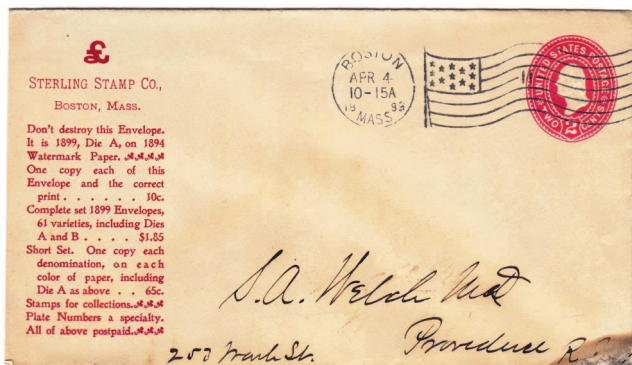 £
STERLING STAMP CO.,
BOSTON, MASS.
Don't destroy this Envelope.
It is 1899, Die A, on 1894
Watermark Paper.
One copy each of this
Envelope and the correct
print . . . . . . 10c.
Complete set 1899 Envelopes,
61 varieties, including Dies
A and B . . . . . $1.85
Short Set. One copy each
denomination, on each
color of paper, including
Die A as above . . 65c.
Stamps for collections.
Plate Numbers a specialty.
All of above postpaid.
BOSTON
APR 4
10-15A
18 99
MASS.
UNITED STATES POSTAGE
TWO 2 CENTS
S. A. Welch
Providence R.
St.